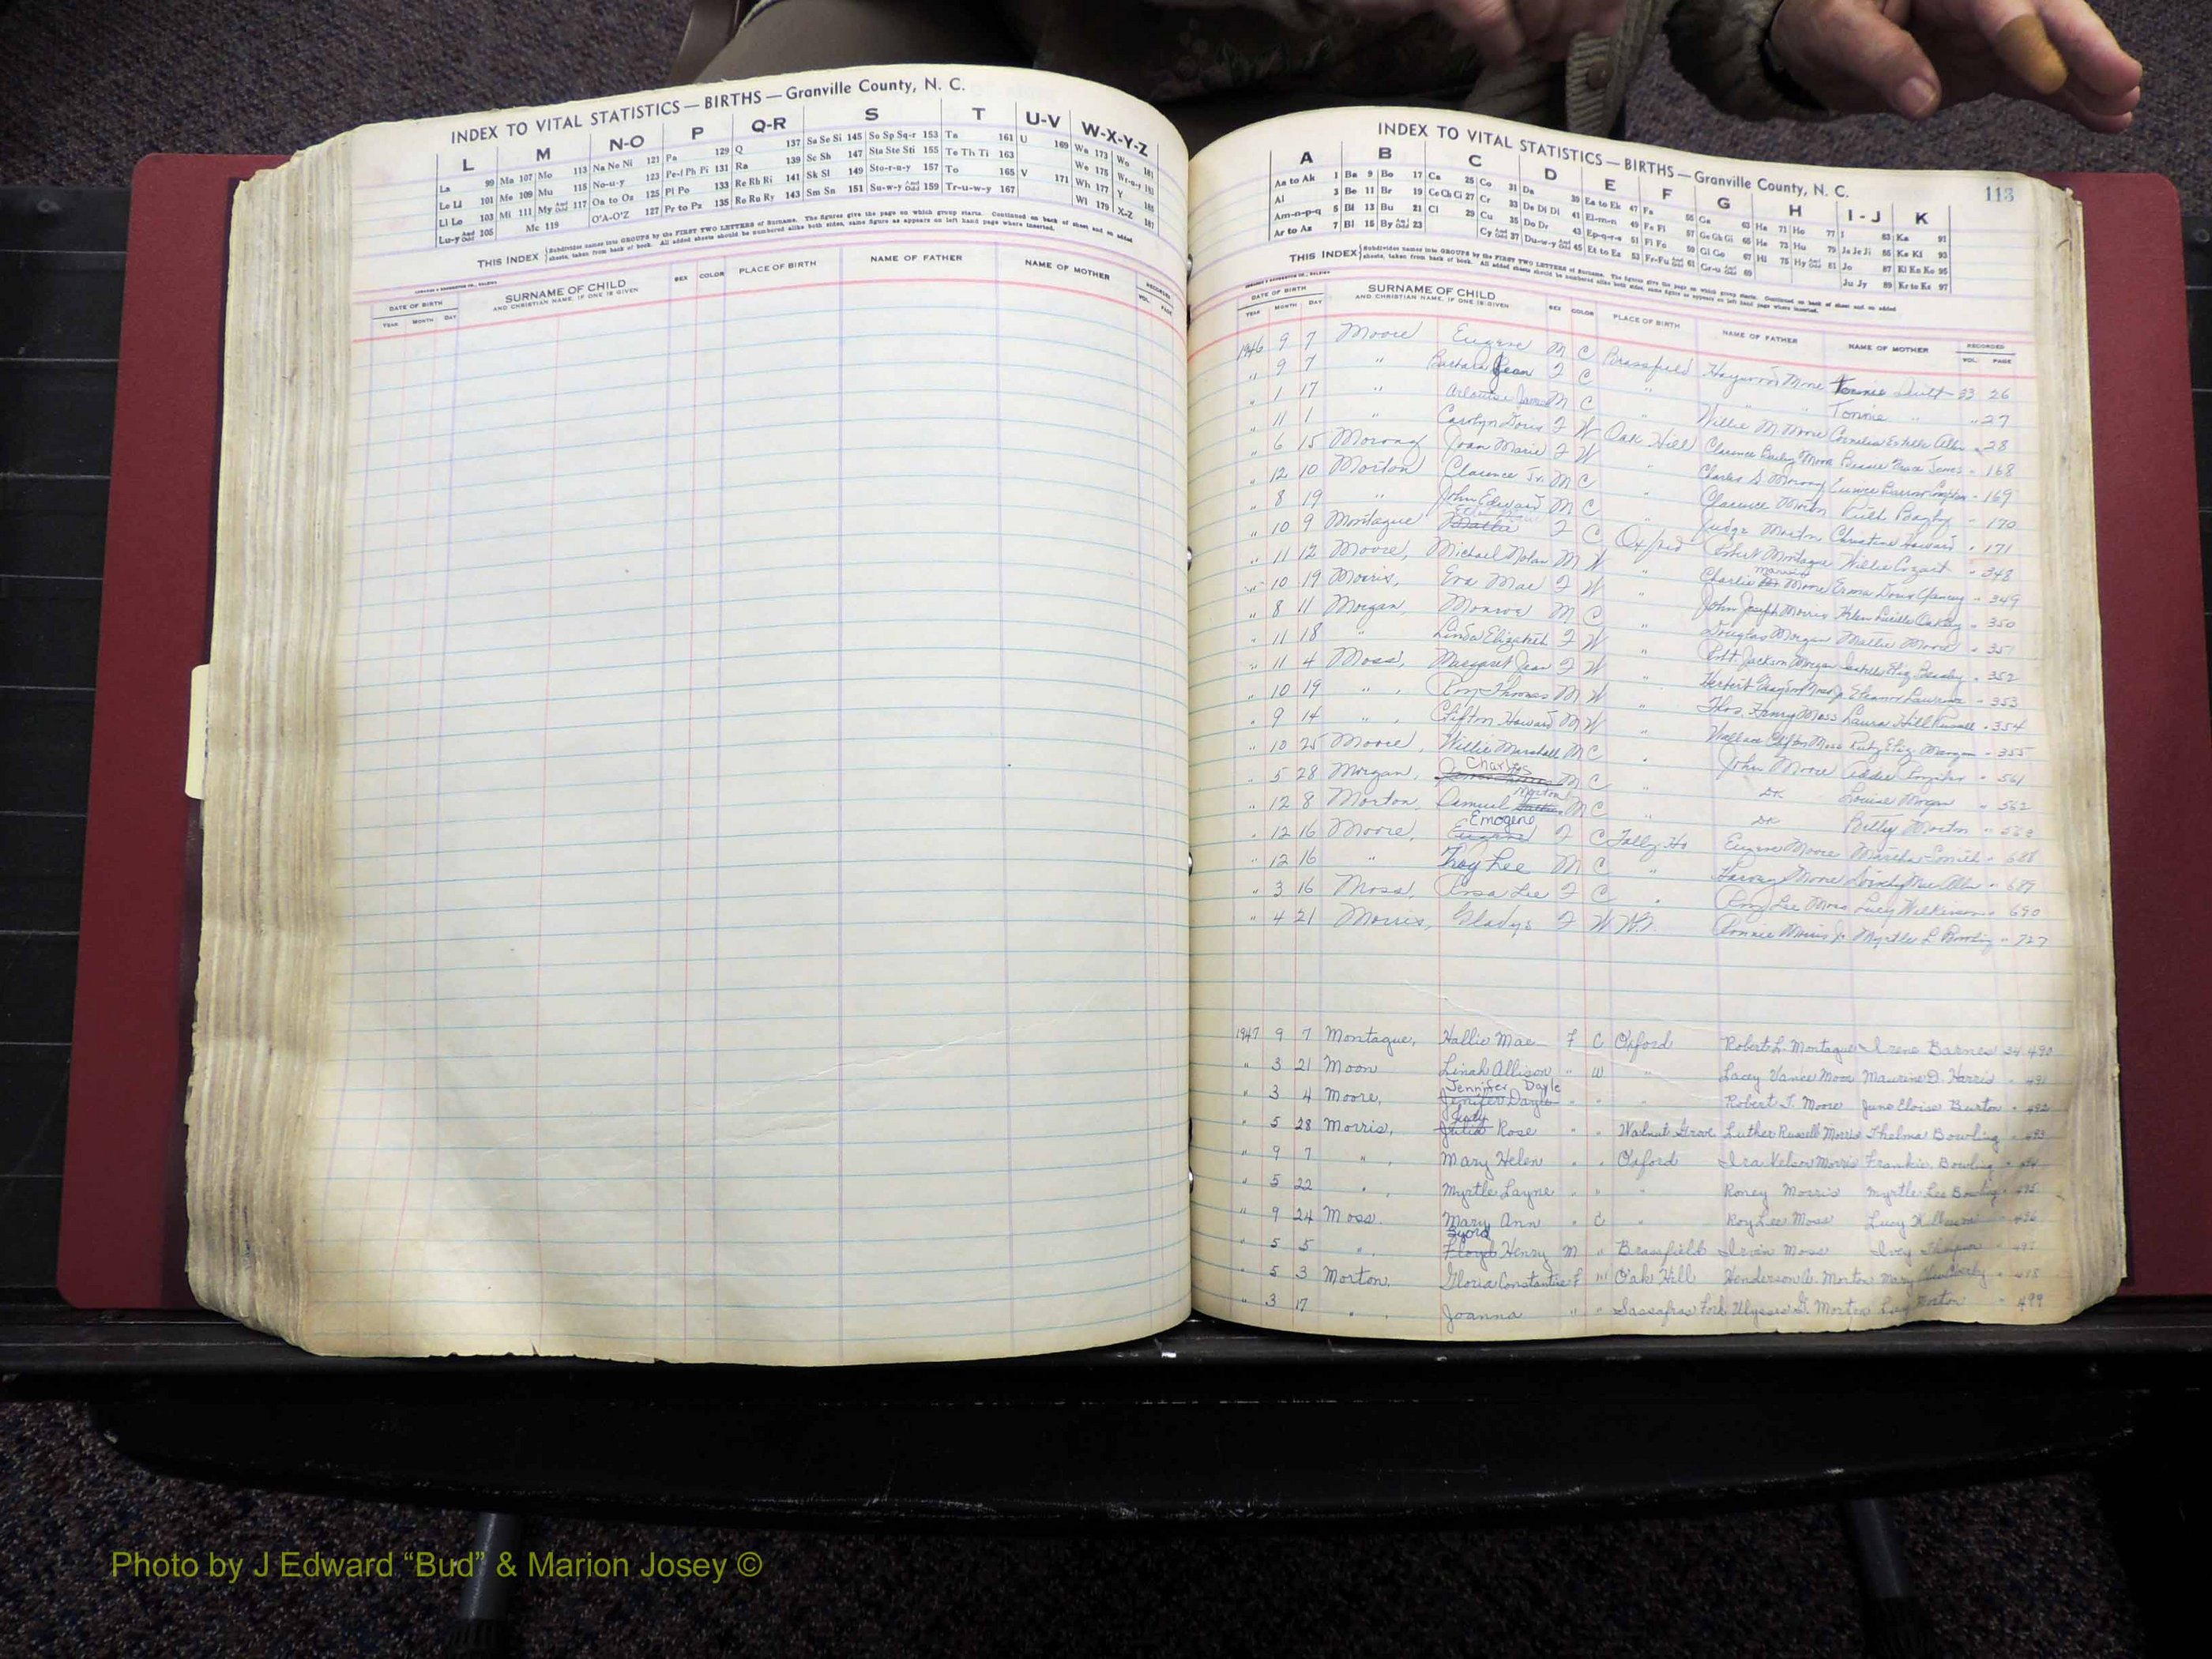 INDEX TO VITAL STATISTICS — BIRTHS — Granville County, N. C.
L M N-O P Q-R S T U-V W-X-Y-Z
La 99 Ma 107 Mo 113 Na Ne Ni 121 Pa 129 Q 137 Sa Se Si 145 So Sp Sq-r 153 Ta 161 U 169 Wa 173 Wo 181
Le Li 101 Me 109 Mu 115 No-u-y 123 Pe-f Ph Pi 131 Ra 139 Sc Sh 147 Sta Ste Sti 155 Te Th Ti 163 We 175
Ll Lo 103 Mi 111 My And Odd 117 Oa to Oz 125 Pl Po 133 Re Rh Ri 141 Sk Sl 149 Sto-r-u-y 157 To 165 V 171 Wh 177 Y
Lu-y And Odd 105 Mc 119 O'A-O'Z 127 Pr to Pz 135 Ro Ru Ry 143 Sm Sn 151 Su-w-y And Odd 159 Tr-u-w-y 167 Wi 179 X-Z 187
THIS INDEX Subdivides names into GROUPS by the FIRST TWO LETTERS of Surname. The figures give the page on which group starts. Continued on back of sheet and on added
sheets, taken from back of book. All added sheets should be numbered alike both sides, same figure as appears on left hand page where inserted.
DATE OF BIRTH SURNAME OF CHILD SEX COLOR PLACE OF BIRTH NAME OF FATHER NAME OF MOTHER RECORDED
YEAR MONTH DAY AND CHRISTIAN NAME, IF ONE IS GIVEN VOL. PAGE
INDEX TO VITAL STATISTICS — BIRTHS — Granville County, N. C. 113
A B C D E F G H I-J K
Aa to Ak 1 Ba 9 Bo 17 Ca 25 Co 31 Da 39 Ea to Ek 47 Fa 55 Ga 63 Ha 71 Ho 77 I 83 Ka 91
Al 3 Be 11 Br 19 Ce Ch Ci 27 Cr 33 De Di Dl 41 El-m-n 49 Fe Fi 57 Ge Gh Gi 65 He 73 Hu 79 Ja Je Ji 85 Ke Kl 93
Am-n-p-q 5 Bl 13 Bu 21 Cl 29 Cu 35 Do Dr 43 Ep-q-r-s 51 Fl Fo 59 Gl Go 67 Hi 75 Hy And Odd 81 Jo 87 Kl Kn Ko 95
Ar to Az 7 Bl 15 By And Odd 23 Cy And Odd 37 Du-w-y And Odd 45 Et to Ez 53 Fr-Fu And Odd 61 Gr-u And Odd 69 Ju Jy 89 Kr to Kz 97
THIS INDEX Subdivides names into GROUPS by the FIRST TWO LETTERS of Surname. The figures give the page on which group starts. Continued on back of sheet and on added
sheets, taken from back of book. All added sheets should be numbered alike both sides, same figure as appears on left hand page where inserted.
DATE OF BIRTH SURNAME OF CHILD SEX COLOR PLACE OF BIRTH NAME OF FATHER NAME OF MOTHER RECORDED
YEAR MONTH DAY AND CHRISTIAN NAME, IF ONE IS GIVEN VOL. PAGE
1946 9 7 Moore Eugene M C Brassfield Haywood Moore Tonnie Ault 33 26
" 9 7 " Barbara Jean F C " " " Tonnie " " 27
" 1 17 " James M C " Willie M. Moore Cornelia Estelle Allen " 28
" 11 1 " Carolyn Doris F W Oak Hill Clarence Moore Bessie Grace Jones " 168
" 6 15 Morong Joan Marie F W " Charles S. Morong Eunice Barrow " 169
" 12 10 Morton Clarence Jr. M C " Clarence Morton Ruth Bagby " 170
" 8 19 " John Edward M C " Judge Morton Christine Howard " 171
" 10 9 Montague Mattie F C Oxford Robert Montague Willie Cozart " 348
" 11 12 Moore, Michael Nolan M W " Charlie Moore Erma Doris Clancy " 349
" 10 19 Morris, Eva Mae F W " John Joseph Morris Helen Lucille Oakley " 350
" 8 11 Morgan, Monroe M C " Douglas Morgan Mallie Moore " 351
" 11 18 " Linda Elizabeth F W " Robt. Jackson Morgan Eliz. Beasley " 352
" 11 4 Moss, Margaret Jean F W " Herbert Grayson Moss Jr. Eleanor Lawrence " 353
" 10 19 " Roy Thomas M W " Thos. Henry Moss Laura Hill Russell " 354
" 9 14 " Clifton Howard M W " Wallace Clifton Moss Ruby Eliz. Morgan " 355
" 10 25 Moore, Willie Marshall M C " John Moore Addie " 561
" 5 28 Morgan, Charles M C " DK Louise Morgan " 562
" 12 8 Morton, Samuel Morton M C " DK Betty Morton " 563
" 12 16 Moore, Emogene Eugene F C Tally-Ho Eugene Moore Martha Smith " 688
" 12 16 " Troy Lee M C " Harvey Moore Dorothy Mae Allen " 689
" 3 16 Moss, Rosa Lee F C " Roy Lee Moss Lucy Wilkerson " 690
" 4 21 Morris, Gladys F W W.G. Ronnie Morris Jr. Myrtle L. Bowling " 727
1947 9 7 Montague, Hallie Mae F C Oxford Robert L. Montague Irene Barnes 34 490
" 3 21 Moon Linah Allison " W " Lacey Vance Moon Maurine D. Harris " 491
" 3 4 Moore, Jennifer Dayle Jenifer Dayle " " " Robert T. Moore June Eloise Burton " 492
" 5 28 Morris, Judy Julia Rose " " Walnut Grove Luther Russell Morris Thelma Bowling " 493
" 9 7 " Mary Helen " " Oxford Ira Nelson Morris Frankie Bowling " 494
" 5 22 " Myrtle Layne " " " Roney Morris Myrtle Lee Bowling " 495
" 9 24 Moss. Mary Ann " C " Roy Lee Moss Lucy " 496
" 5 5 " Byord Floyd Henry M " Brassfield Irvin Moss Ivey " 497
" 5 3 Morton, Gloria Constantine F W Oak Hill Henderson A. Morton Mary " 498
" 3 17 " Joanna " " Sassafras Fork Ulysses G. Morton Lucy Morton " 499
Photo by J Edward “Bud” & Marion Josey ©